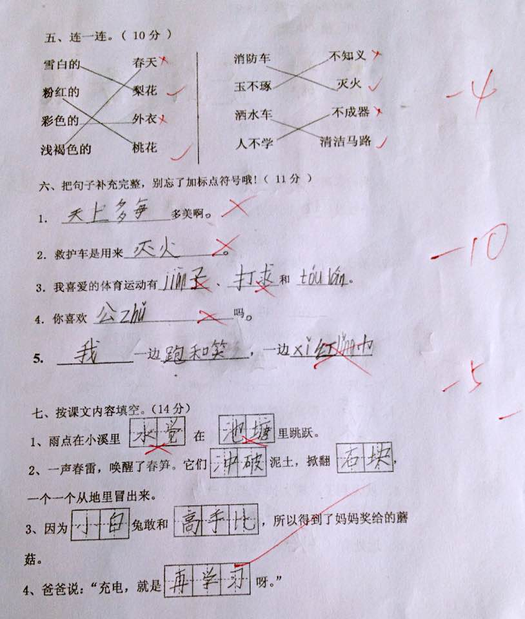 五、连一连。（10分）
雪白的 春天 消防车 不知义
粉红的 梨花 玉不琢 灭火
彩色的 外衣 洒水车 不成器
浅褐色的 桃花 人不学 清洁马路
-4
六、把句子补充完整，别忘了加标点符号哦!（11分）
1. 天上多每 多美啊。
2. 救护车是用来 灭火 。
-10
3. 我喜爱的体育运动有 子、打求 和 。
4. 你喜欢 公zhǔ 吗。
5. 我 一边 跑和笑 ，一边
-5
七、按课文内容填空。（14分）
1、雨点在小溪里 水 在 池塘 里跳跃。
2、一声春雷，唤醒了春笋。它们 冲破 泥土，掀翻 石块，
一个一个从地里冒出来。
3、因为 小白 兔敢和 高手比 ，所以得到了妈妈奖给的蘑
菇。
4、爸爸说：“充电，就是 再学习 呀。”